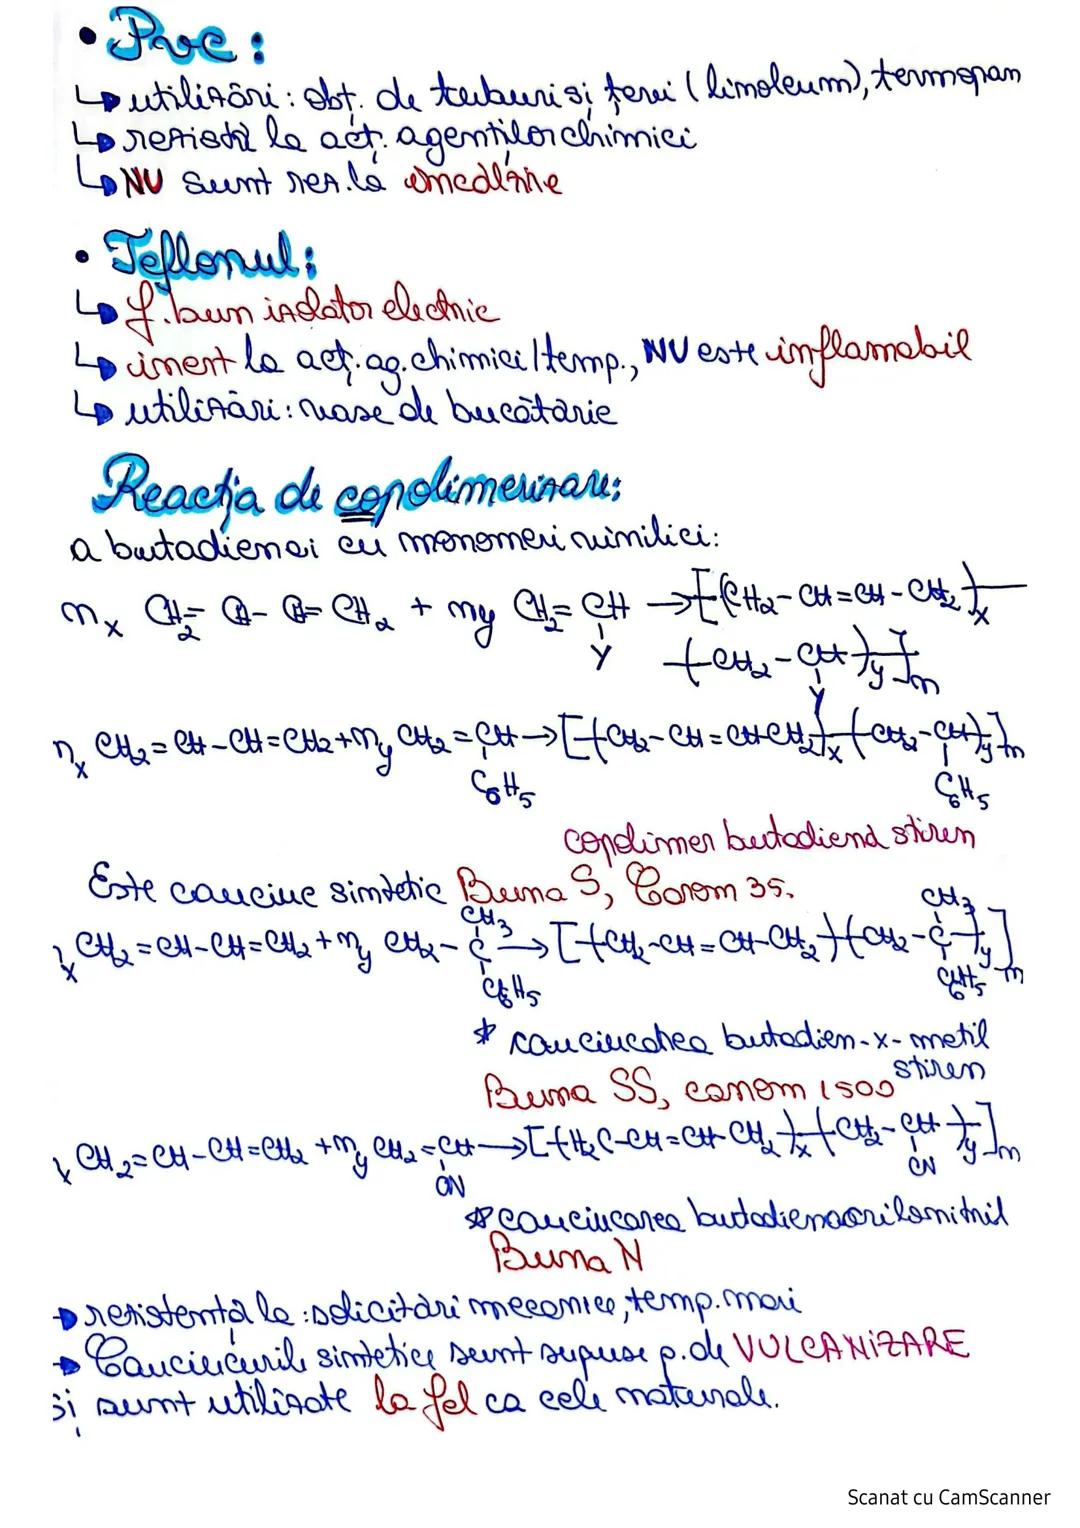 • PVC :
↳ utilizări : obț. de tuburi și țevi (linoleum), termopan
↳ rezistă la acț. agenților chimici
↳ NU sunt rez. la
• Teflonul :
↳ f. bun izolator electric
↳ inert la acț. ag. chimici / temp., NU este inflamabil
↳ utilizări : vase de bucătărie
Reacția de copolimerizare:
a butadienei cu monomeri vinilici:
nx CH2= CH- CH= CH2 + ny CH2= CH → [-(CH2-CH=CH-CH2)x-
Y
-(CH2-CH)y-]n
Y
nx CH2=CH-CH=CH2+ny CH2=CH→[-(CH2-CH=CH-CH2)x-(CH2-CH)y-]n
C6H5 C6H5
copolimer butadienă stiren
Este cauciuc sintetic Buna S, Carom 35.
CH3 CH3
x CH2=CH-CH=CH2+ny CH2-C→[-(CH2-CH=CH-CH2)-(CH2-C-)y]n
C6H5 C6H5
* cauciucatea butadien-x-metil
stiren
Buna SS, carom 1500
x CH2=CH-CH=CH2 +ny CH2=CH→[-(H2C-CH=CH-CH2)x-(CH2-CH)y-]n
CN CN
* cauciucarea butadienacrilonitril
Buna N
→ rezistență la : solicitări mecanice, temp. mari
→ Cauciucurile sintetice sunt supuse p. de VULCANIZARE
și sunt utilizate la fel ca cele naturale.
Scanat cu CamScanner